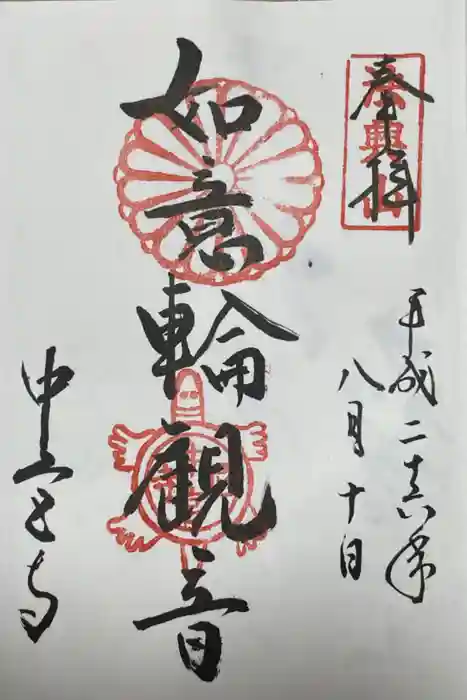 奉拝
平成二十六年
八月十日
如意輪観音
中宮寺